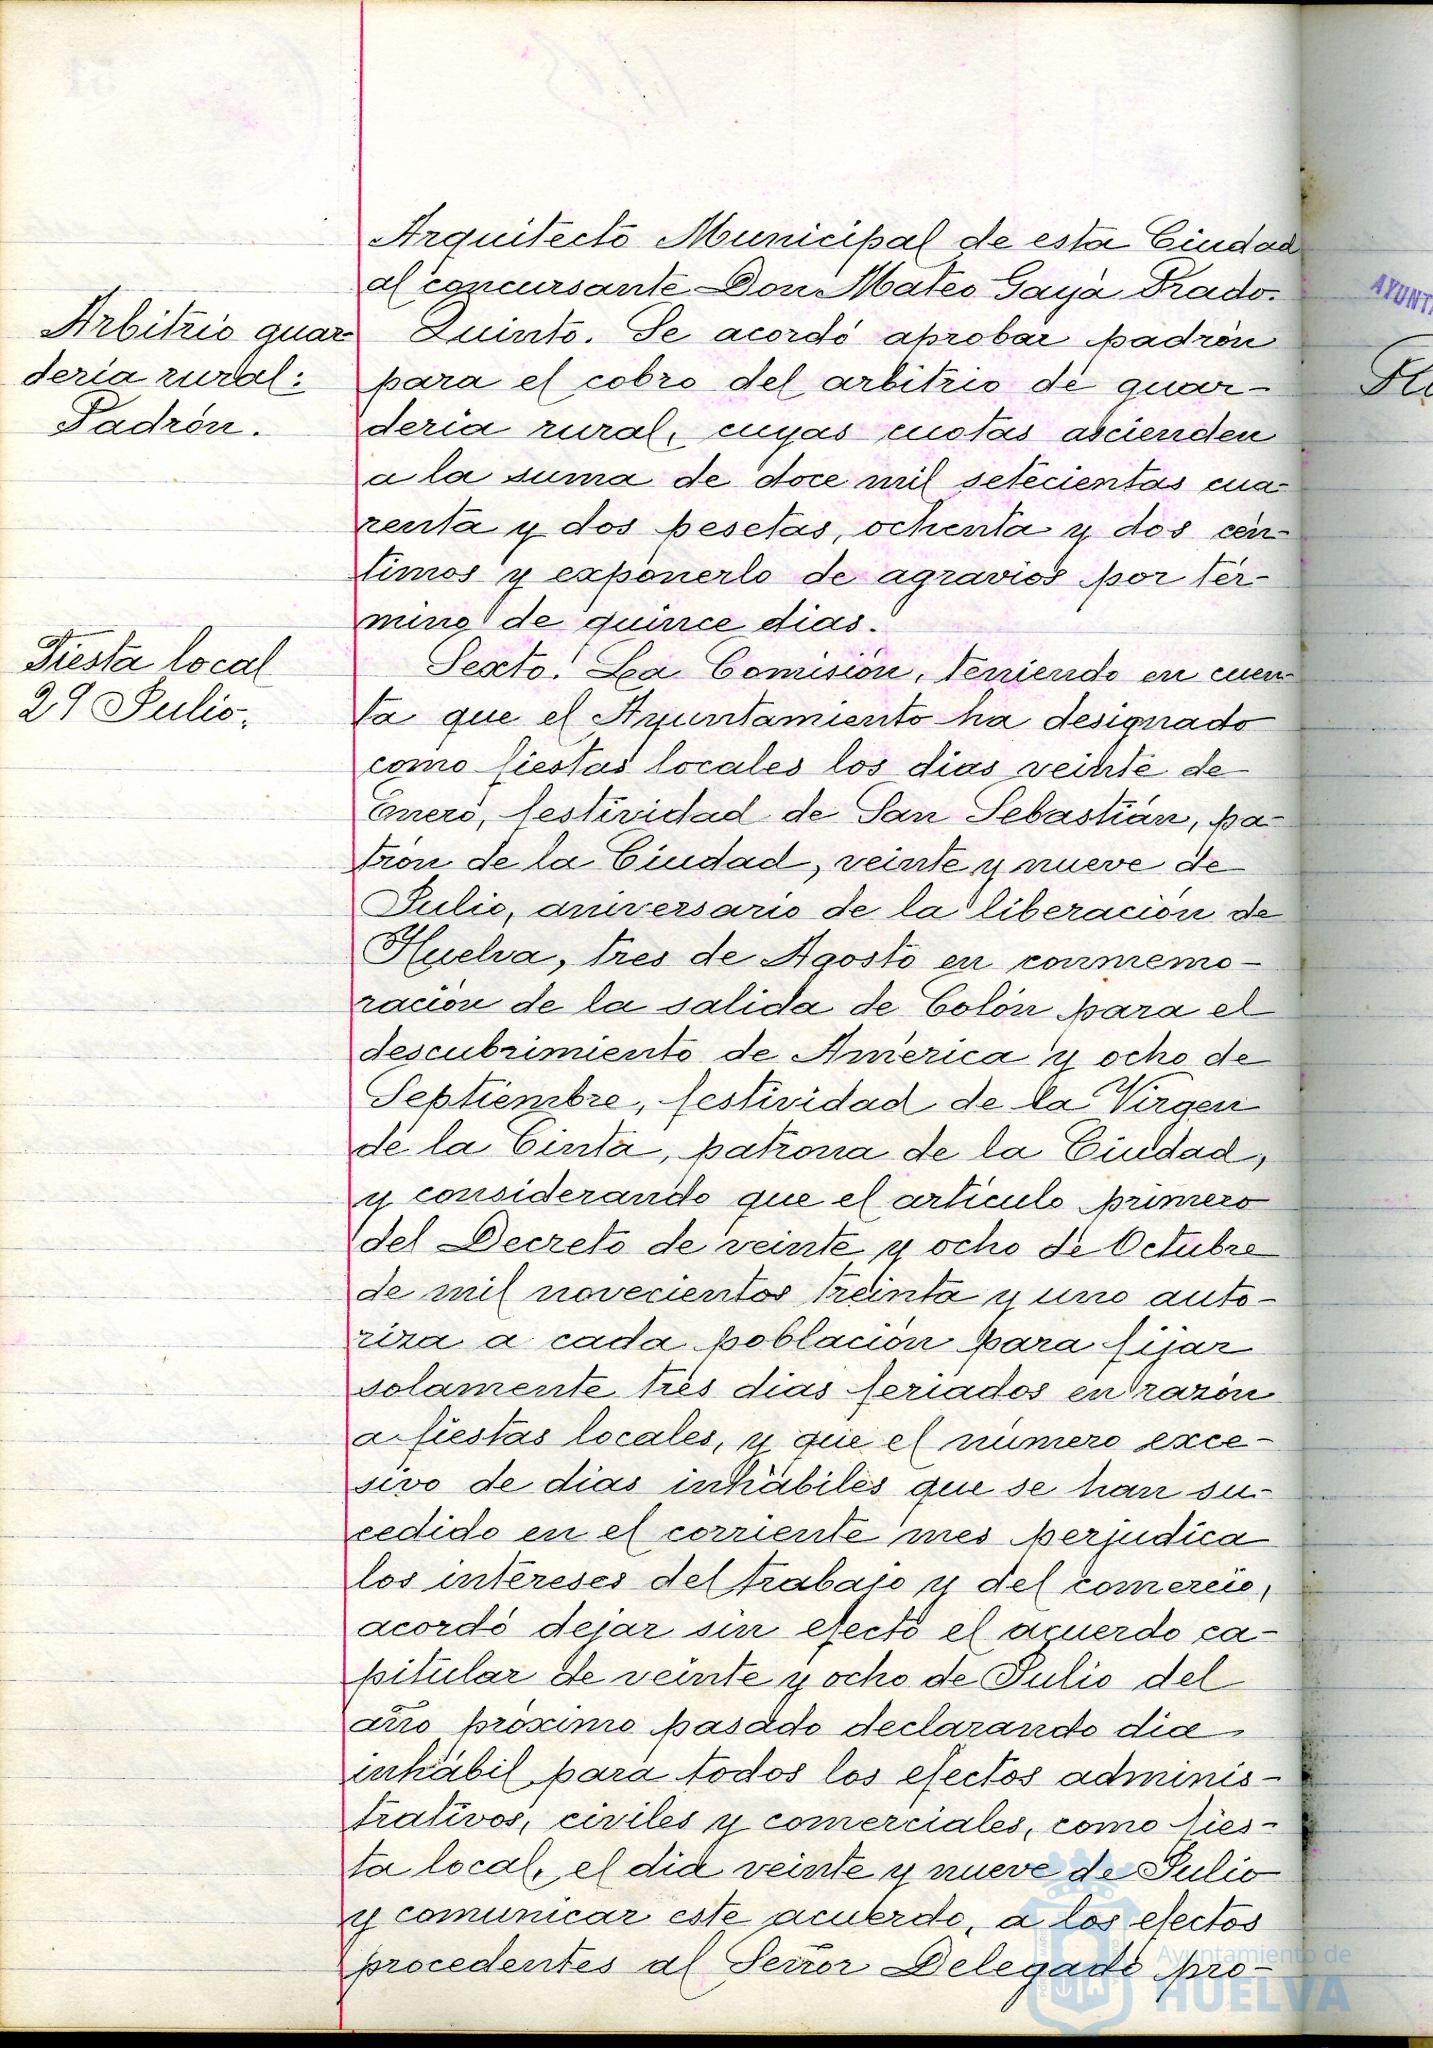 Arquitecto Municipal de esta Ciudad
al concursante Don Mateo Gayá Prado.
Arbitrio guar
deria rural:
Padrón.
Quinto. Se acordó aprobar padrón
para el cobro del arbitrio de guar-
deria rural, cuyas cuotas ascienden
a la suma de doce mil setecientas cua-
renta y dos pesetas, ochenta y dos cén-
timos y exponerlo de agravios por tér-
mino de quince dias.
Fiesta local
29 Julio.
Sexto. La Comisión, teniendo en cuen-
ta que el Ayuntamiento ha designado
como fiestas locales los dias veinte de
Enero, festividad de San Sebastián, pa-
trón de la Ciudad, veinte y nueve de
Julio, aniversario de la liberación de
Huelva, tres de Agosto en conmemo-
ración de la salida de Colón para el
descubrimiento de América y ocho de
Septiembre, festividad de la Virgen
de la Cinta, patrona de la Ciudad,
y considerando que el artículo primero
del Decreto de veinte y ocho de Octubre
de mil novecientos treinta y uno auto-
riza a cada población para fijar
solamente tres dias feriados en razón
a fiestas locales, y que el número exce-
sivo de dias inhábiles que se han su-
cedido en el corriente mes perjudica
los intereses del trabajo y del comercio,
acordó dejar sin efecto el acuerdo ca-
pitular de veinte y ocho de Julio del
año próximo pasado declarando dia
inhábil para todos los efectos adminis-
trativos, civiles y comerciales, como fies-
ta local, el dia veinte y nueve de Julio
y comunicar este acuerdo, a los efectos
procedentes al Señor Delegado pro-
AYUNTA
Ayuntamiento de
HUELVA